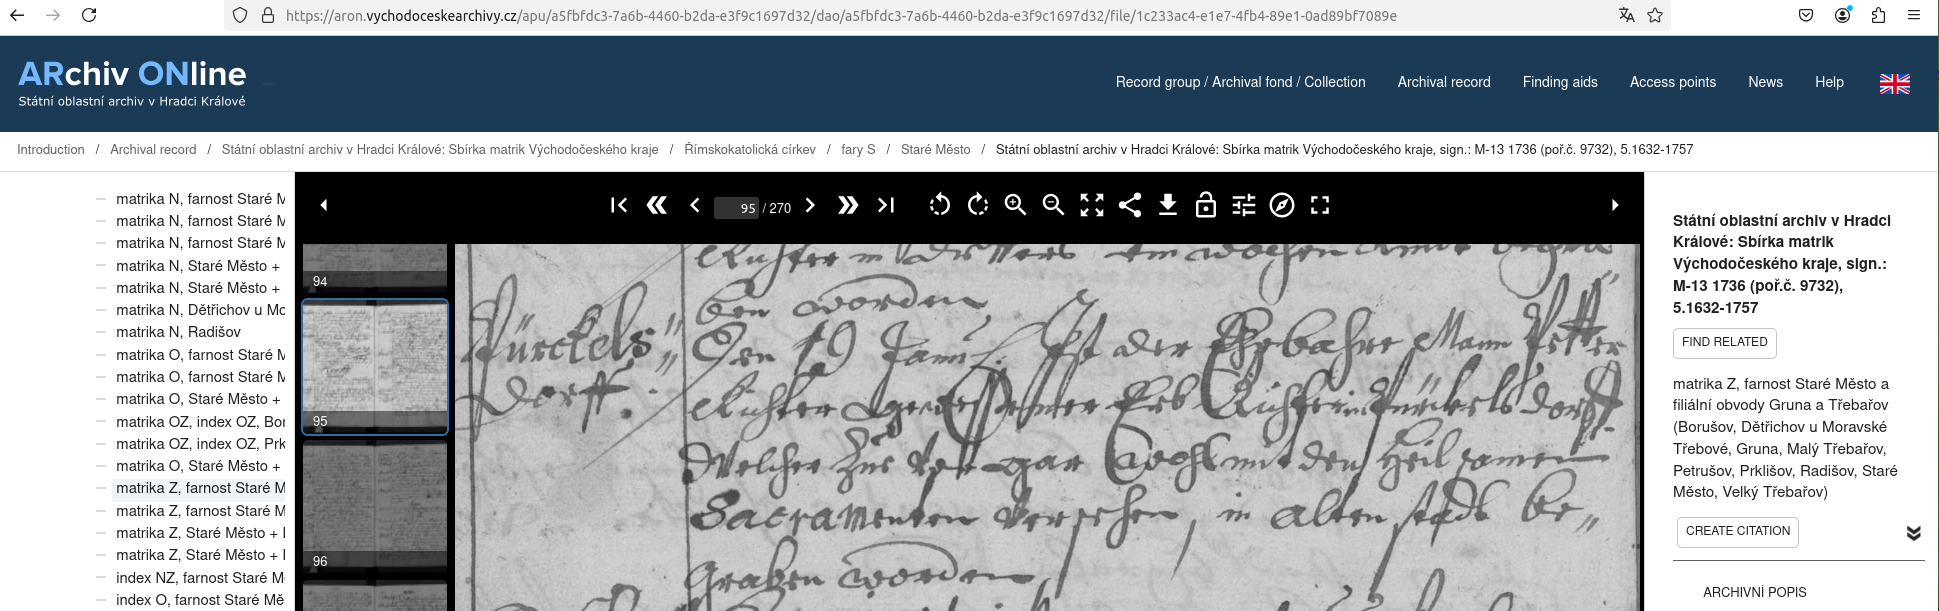 https://aron.vychodoceskearchivy.cz/apu/a5fbfdc3-7a6b-4460-b2da-e3f9c1697d32/dao/a5fbfdc3-7a6b-4460-b2da-e3f9c1697d32/file/1c233ac4-e1e7-4fb4-89e1-0ad89bf7089e
ARchiv ONline
Státní oblastní archiv v Hradci Králové
Record group / Archival fond / Collection
Archival record
Finding aids
Access points
News
Help
Introduction / Archival record / Státní oblastní archiv v Hradci Králové: Sbírka matrik Východočeského kraje / Římskokatolická církev / fary S / Staré Město / Státní oblastní archiv v Hradci Králové: Sbírka matrik Východočeského kraje, sign.: M-13 1736 (poř.č. 9732), 5.1632-1757
matrika N, farnost Staré M
matrika N, farnost Staré M
matrika N, farnost Staré M
matrika N, Staré Město +
matrika N, Staré Město +
matrika N, Dětřichov u Mo
matrika N, Radišov
matrika O, farnost Staré M
matrika O, farnost Staré M
matrika O, Staré Město +
matrika OZ, index OZ, Bor
matrika OZ, index OZ, Prk
matrika O, Staré Město +
matrika Z, farnost Staré M
matrika Z, farnost Staré M
matrika Z, Staré Město + I
matrika Z, Staré Město + I
index NZ, farnost Staré M
index O, farnost Staré Mě
95 / 270
94
95
96
ben worden
Pürckels"
Dorff.
Den 19 Januʃ. Ist der Ehrbahre Mann Petter
Richter gewessener Erb Richter in Pürckelsdorff
Welcher Zue Vor gar Wohl mit den Heilsamen
Sacramenten Versehen, in Altenstadt be„
graben worden
Státní oblastní archiv v Hradci
Králové: Sbírka matrik
Východočeského kraje, sign.:
M-13 1736 (poř.č. 9732),
5.1632-1757
FIND RELATED
matrika Z, farnost Staré Město a
filiální obvody Gruna a Třebařov
(Borušov, Dětřichov u Moravské
Třebové, Gruna, Malý Třebařov,
Petrušov, Prklišov, Radišov, Staré
Město, Velký Třebařov)
CREATE CITATION
ARCHIVNÍ POPIS